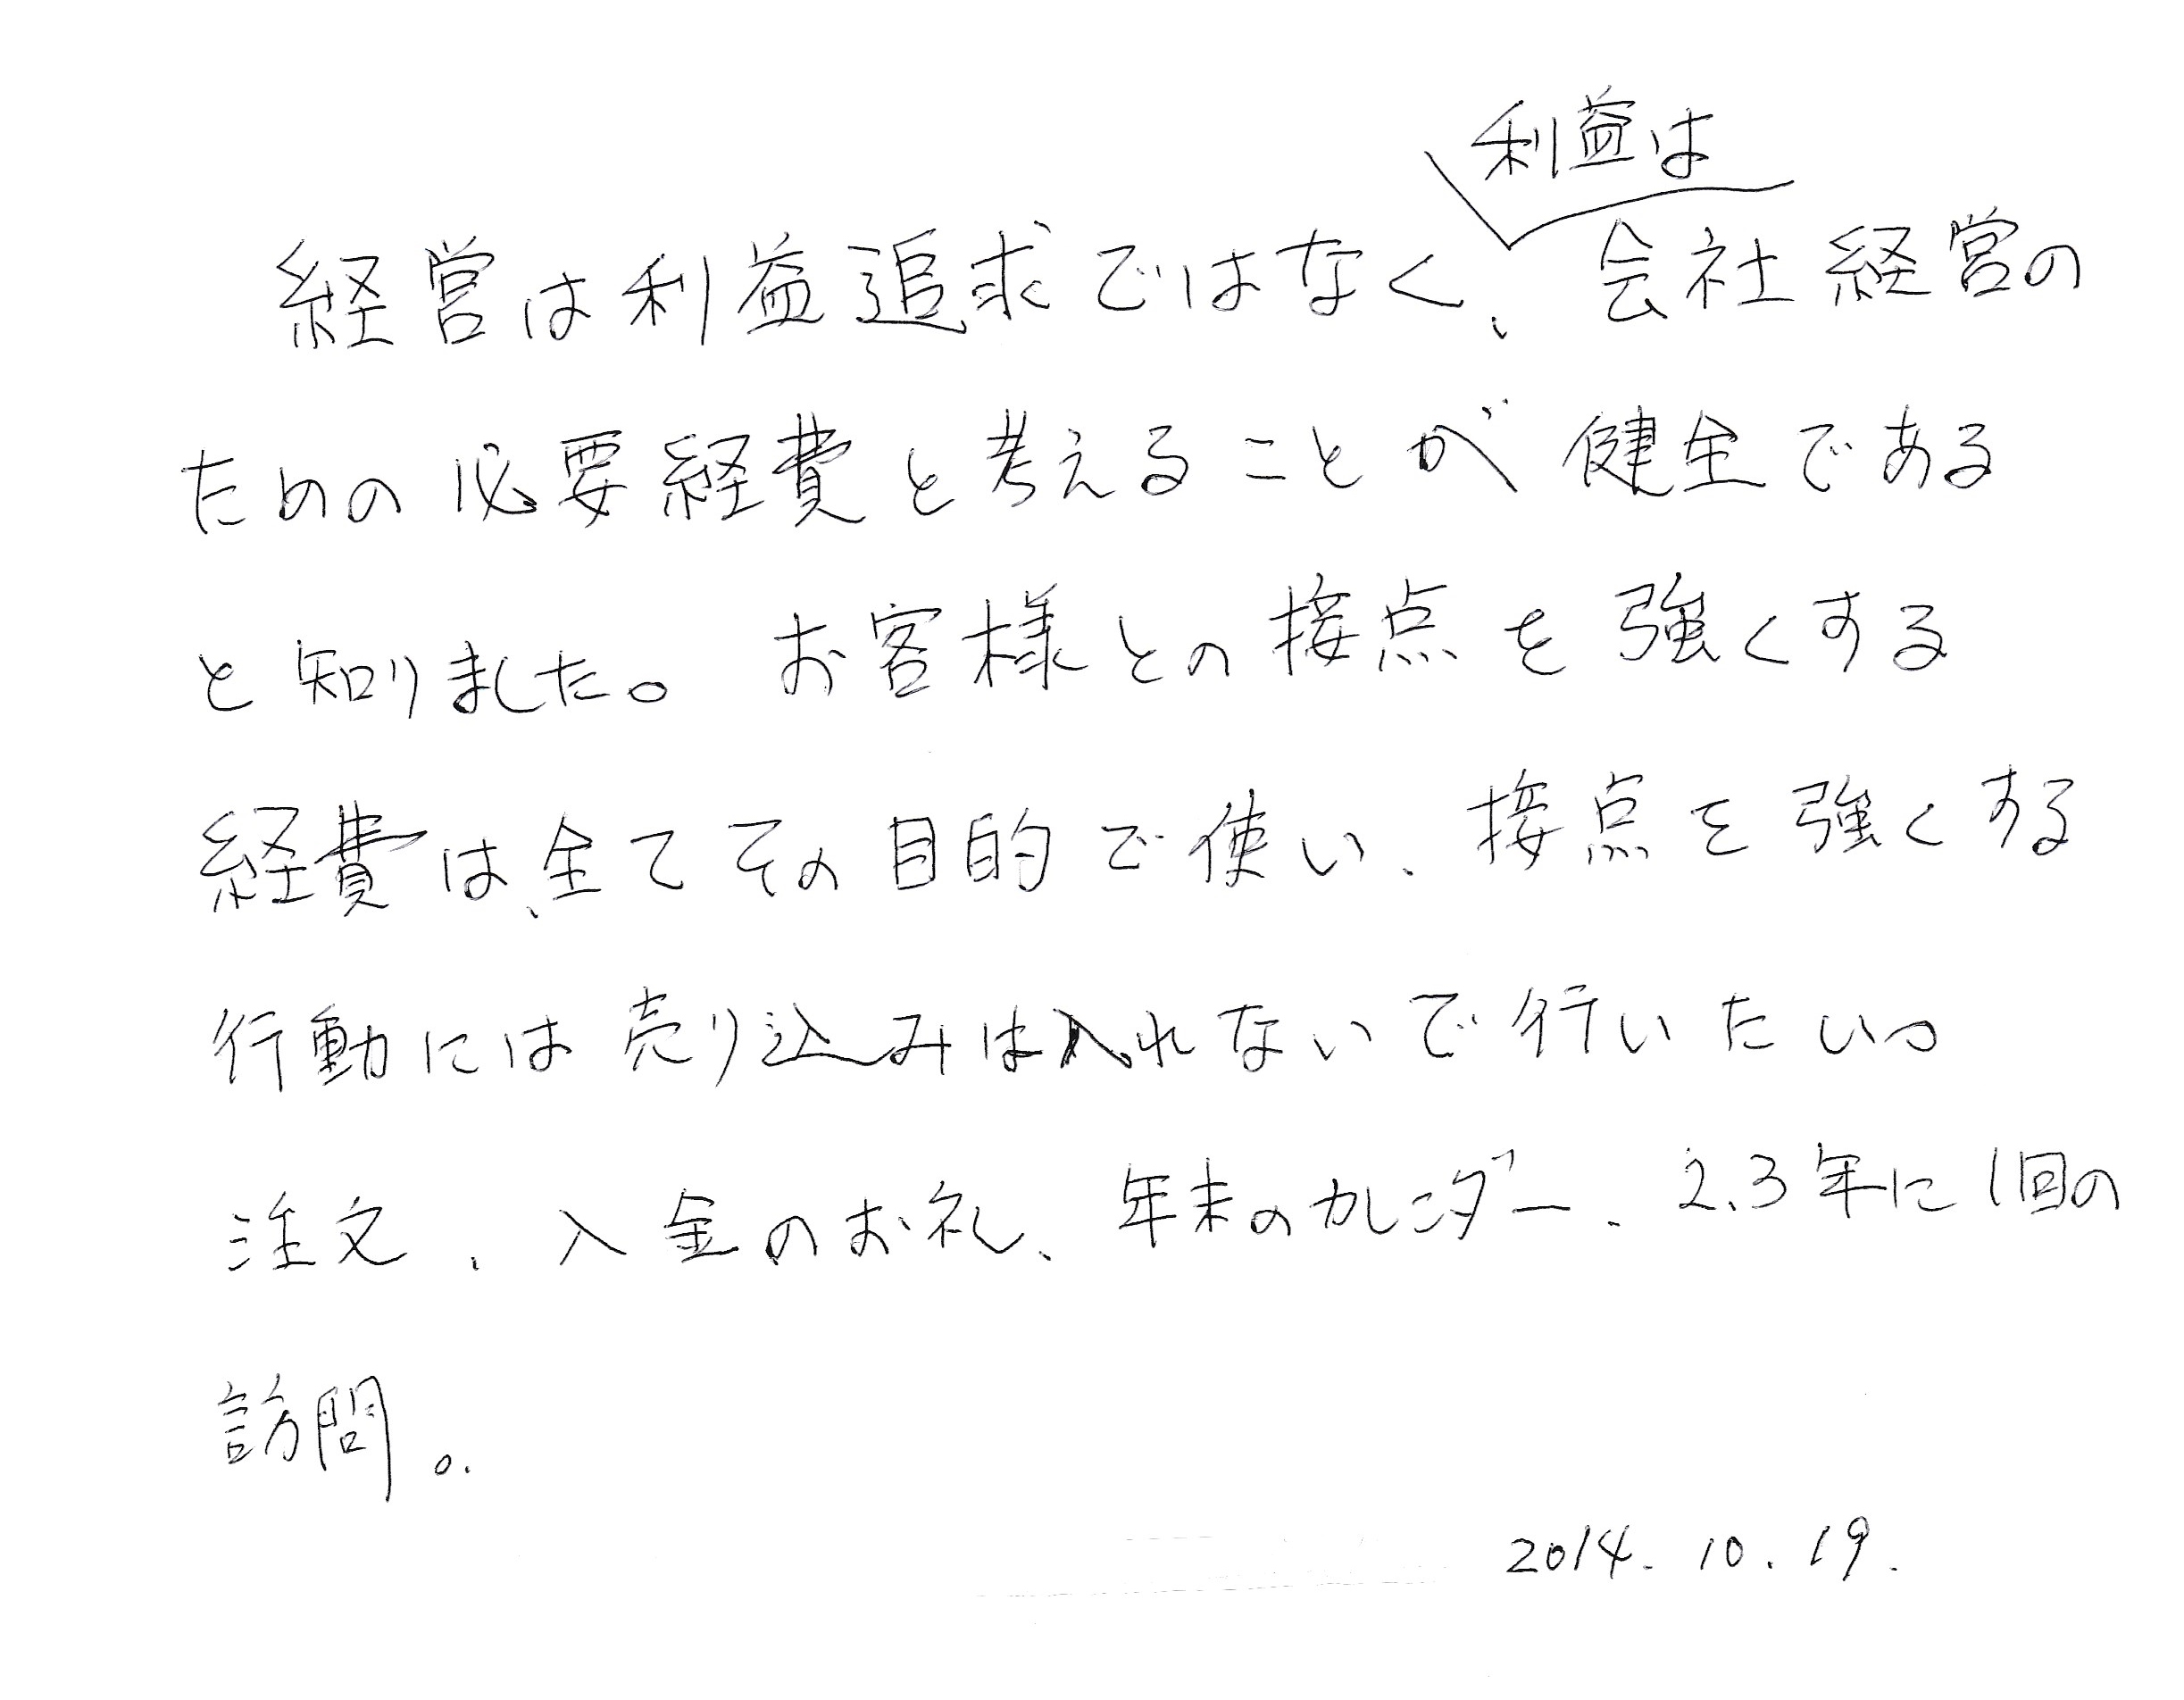 利益は
経営は利益追求ではなく、会社経営の
ための必要経費と考えることが健全である
と知りました。お客様との接点を強くする
経費は、全てその目的で使い、接点を強くする
行動には売り込みは入れないで行いたい。
注文、入金のお礼、年末のカレンダー、2、3年に1回の
訪問。
2014.10.19.